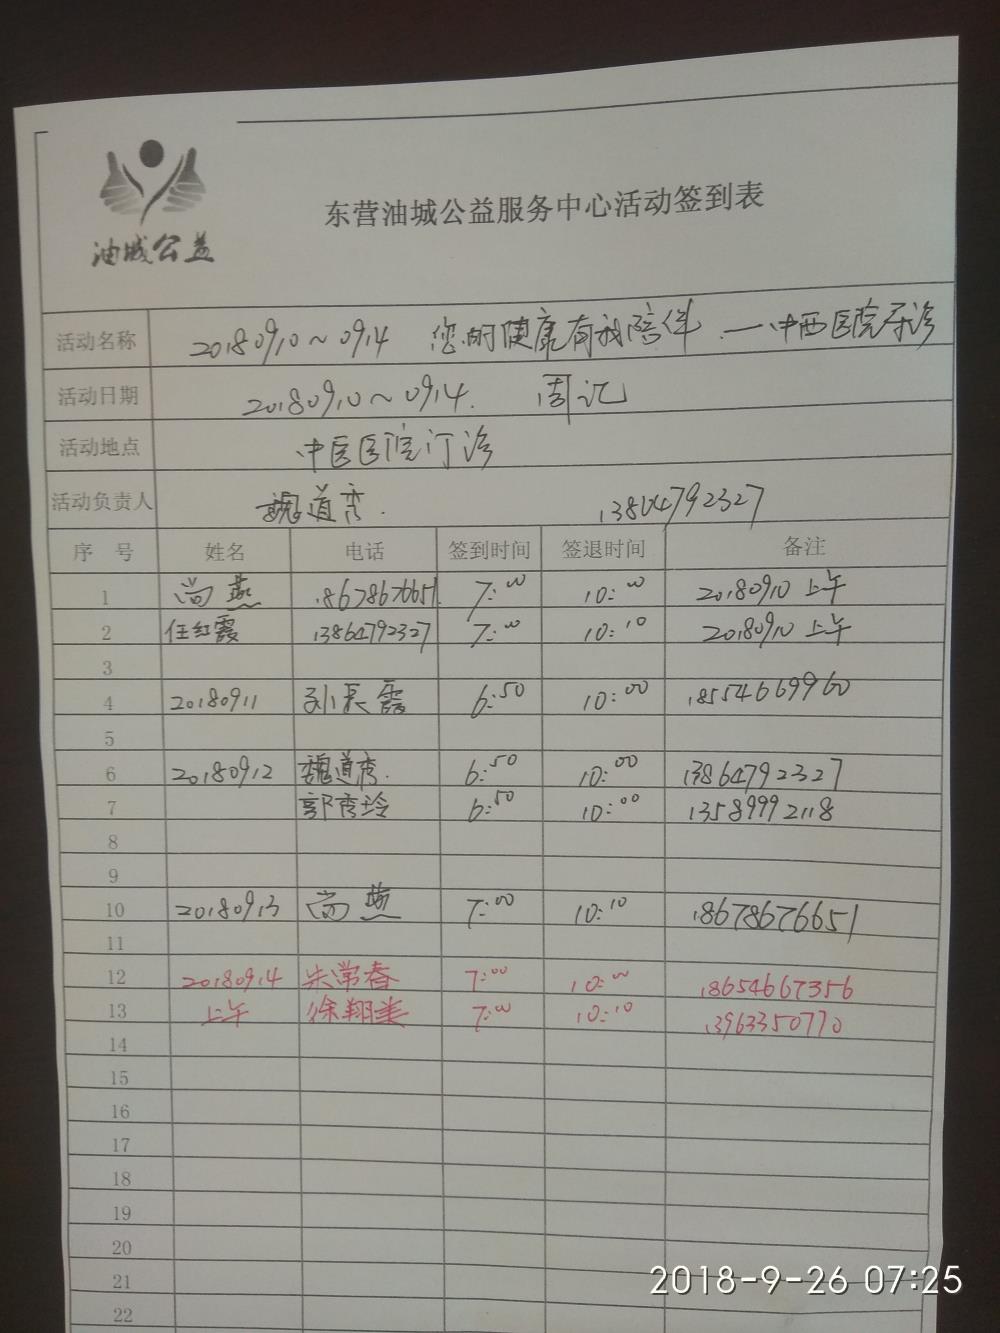 油城公益
东营油城公益服务中心活动签到表
活动名称 20180910～0914 您的健康有我陪伴 — 中西医院导诊
活动日期 20180910～0914. 周记
活动地点 中医医院门诊
活动负责人 魏道秀. 13864792327
序号 姓名 电话 签到时间 签退时间 备注
1 尚燕 18678676651 7:00 10:00 20180910 上午
2 任红霞 13864792327 7:00 10:10 20180910 上午
3
4 20180911 孙长霞 6:50 10:00 18554669960
5
6 20180912 魏道秀. 6:50 10:00 13864792327
7 郭秀玲 6:50 10:00 13589992118
8
9
10 20180913 尚燕 7:00 10:10 18678676651
11
12 20180914 朱常春 7:00 10:00 18654667356
13 上午 徐翔美 7:00 10:10 13963350770
14
15
16
17
18
19
20
21
22
2018-9-26 07:25